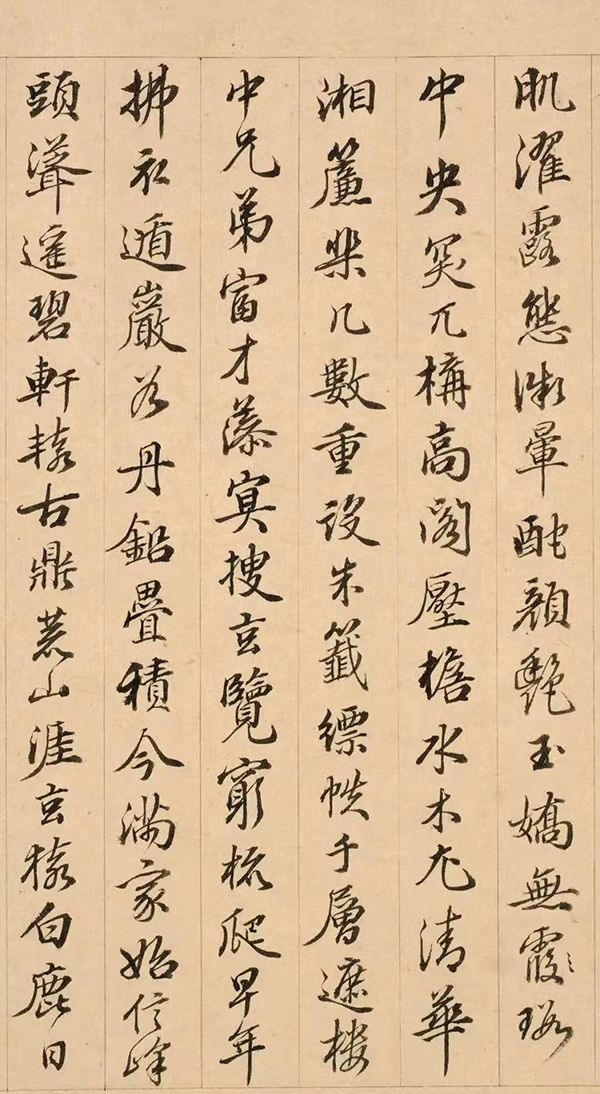 肌濯露態微暈酡顏艷玉嬌無霞瑕
中央突兀構高閣壓檐水木尤清華
湘簾棐几數重設朱籤縹帙千層遮樓
中兄弟富才藻冥搜玄覽窮梳爬早年
拂衣遁巖谷丹鉛疊積今滿家始信峰
頭聳遙碧軒轅古鼎荒山涯玄猿白鹿日